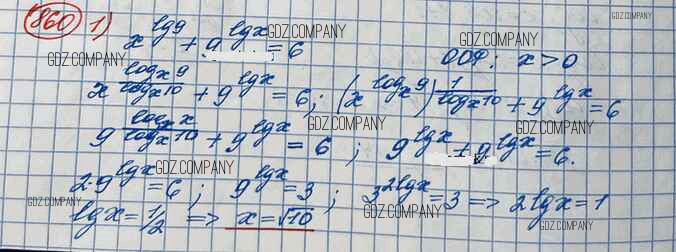 860 1) x^{lg9} + 9^{lgx} = 6
ООФ: x > 0
x^{\frac{log_x 9}{log_x 10}} + 9^{lgx} = 6; (x^{log_x 9})^{\frac{1}{log_x 10}} + 9^{lgx} = 6
9^{\frac{log_x x}{log_x 10}} + 9^{lgx} = 6; 9^{lgx} + 9^{lgx} = 6.
2·9^{lgx} = 6; 9^{lgx} = 3; 3^{2lgx} = 3 => 2lgx = 1
lgx = 1/2 => x = √10
GDZ.COMPANY
GDZ.COMPANY
GDZ.COMPANY
GDZ.COMPANY
GDZ.COMPANY
GDZ.COMPANY
GDZ.COMPANY
GDZ.COMPANY
GDZ.COMPANY
GDZ.COMPANY
GDZ.COMPANY
GDZ.COMPANY
GDZ.COMPANY